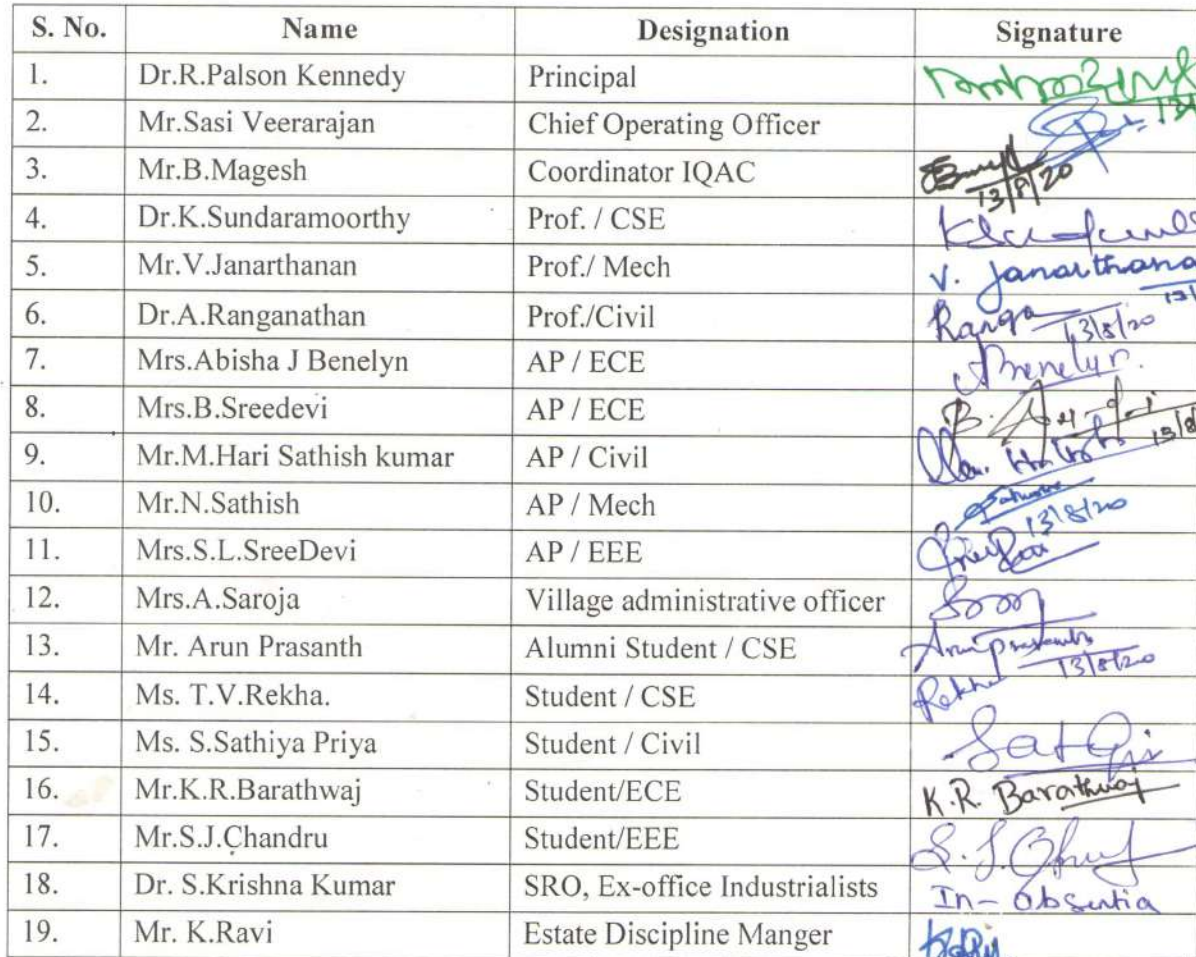 S. No. Name Designation Signature
1. Dr.R.Palson Kennedy Principal
2. Mr.Sasi Veerarajan Chief Operating Officer
3. Mr.B.Magesh Coordinator IQAC 13/8/20
4. Dr.K.Sundaramoorthy Prof. / CSE
5. Mr.V.Janarthanan Prof./ Mech V. Janarthana
6. Dr.A.Ranganathan Prof./Civil Ranga 13/8/20
7. Mrs.Abisha J Benelyn AP / ECE
8. Mrs.B.Sreedevi AP / ECE 13/8
9. Mr.M.Hari Sathish kumar AP / Civil
10. Mr.N.Sathish AP / Mech 13/8/20
11. Mrs.S.L.SreeDevi AP / EEE
12. Mrs.A.Saroja Village administrative officer
13. Mr. Arun Prasanth Alumni Student / CSE 13/8/20
14. Ms. T.V.Rekha. Student / CSE Rekha
15. Ms. S.Sathiya Priya Student / Civil
16. Mr.K.R.Barathwaj Student/ECE K.R. Barathwaj
17. Mr.S.J.Chandru Student/EEE
18. Dr. S.Krishna Kumar SRO, Ex-office Industrialists In-absentia
19. Mr. K.Ravi Estate Discipline Manger